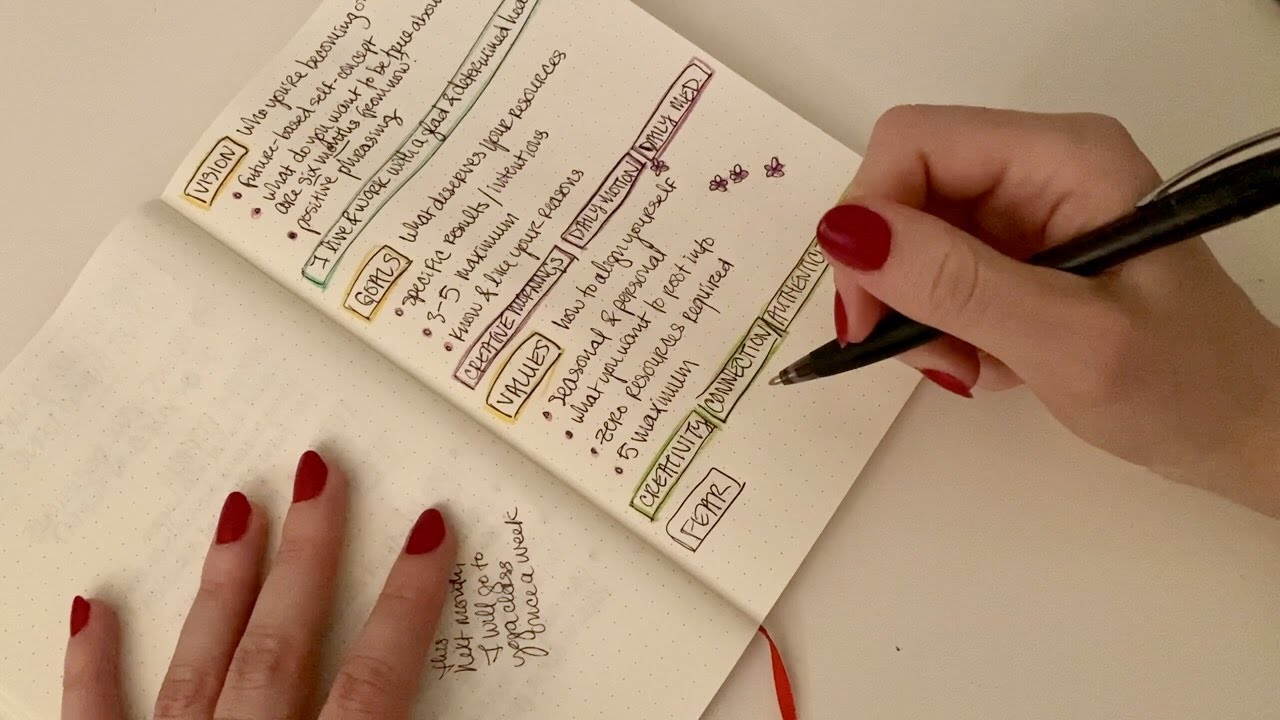 VISION who you're becoming
• future-based self-concept
• what do you want to be true about
are six months from now?
• positive phrasing
I live & work with a glad & determined
GOALS what deserves your resources
• specific results/intentions
• 3-5 maximum
• know & like your reasons
CREATIVE MORNINGS DAILY MOTION DAILY MED
VALUES how to align yourself
• seasonal & personal
• what you want to root into
• zero resources required
• 5 maximum
CREATIVITY CONNECTION
FEAR
this
next month,
I will go to
yoga class
once a week